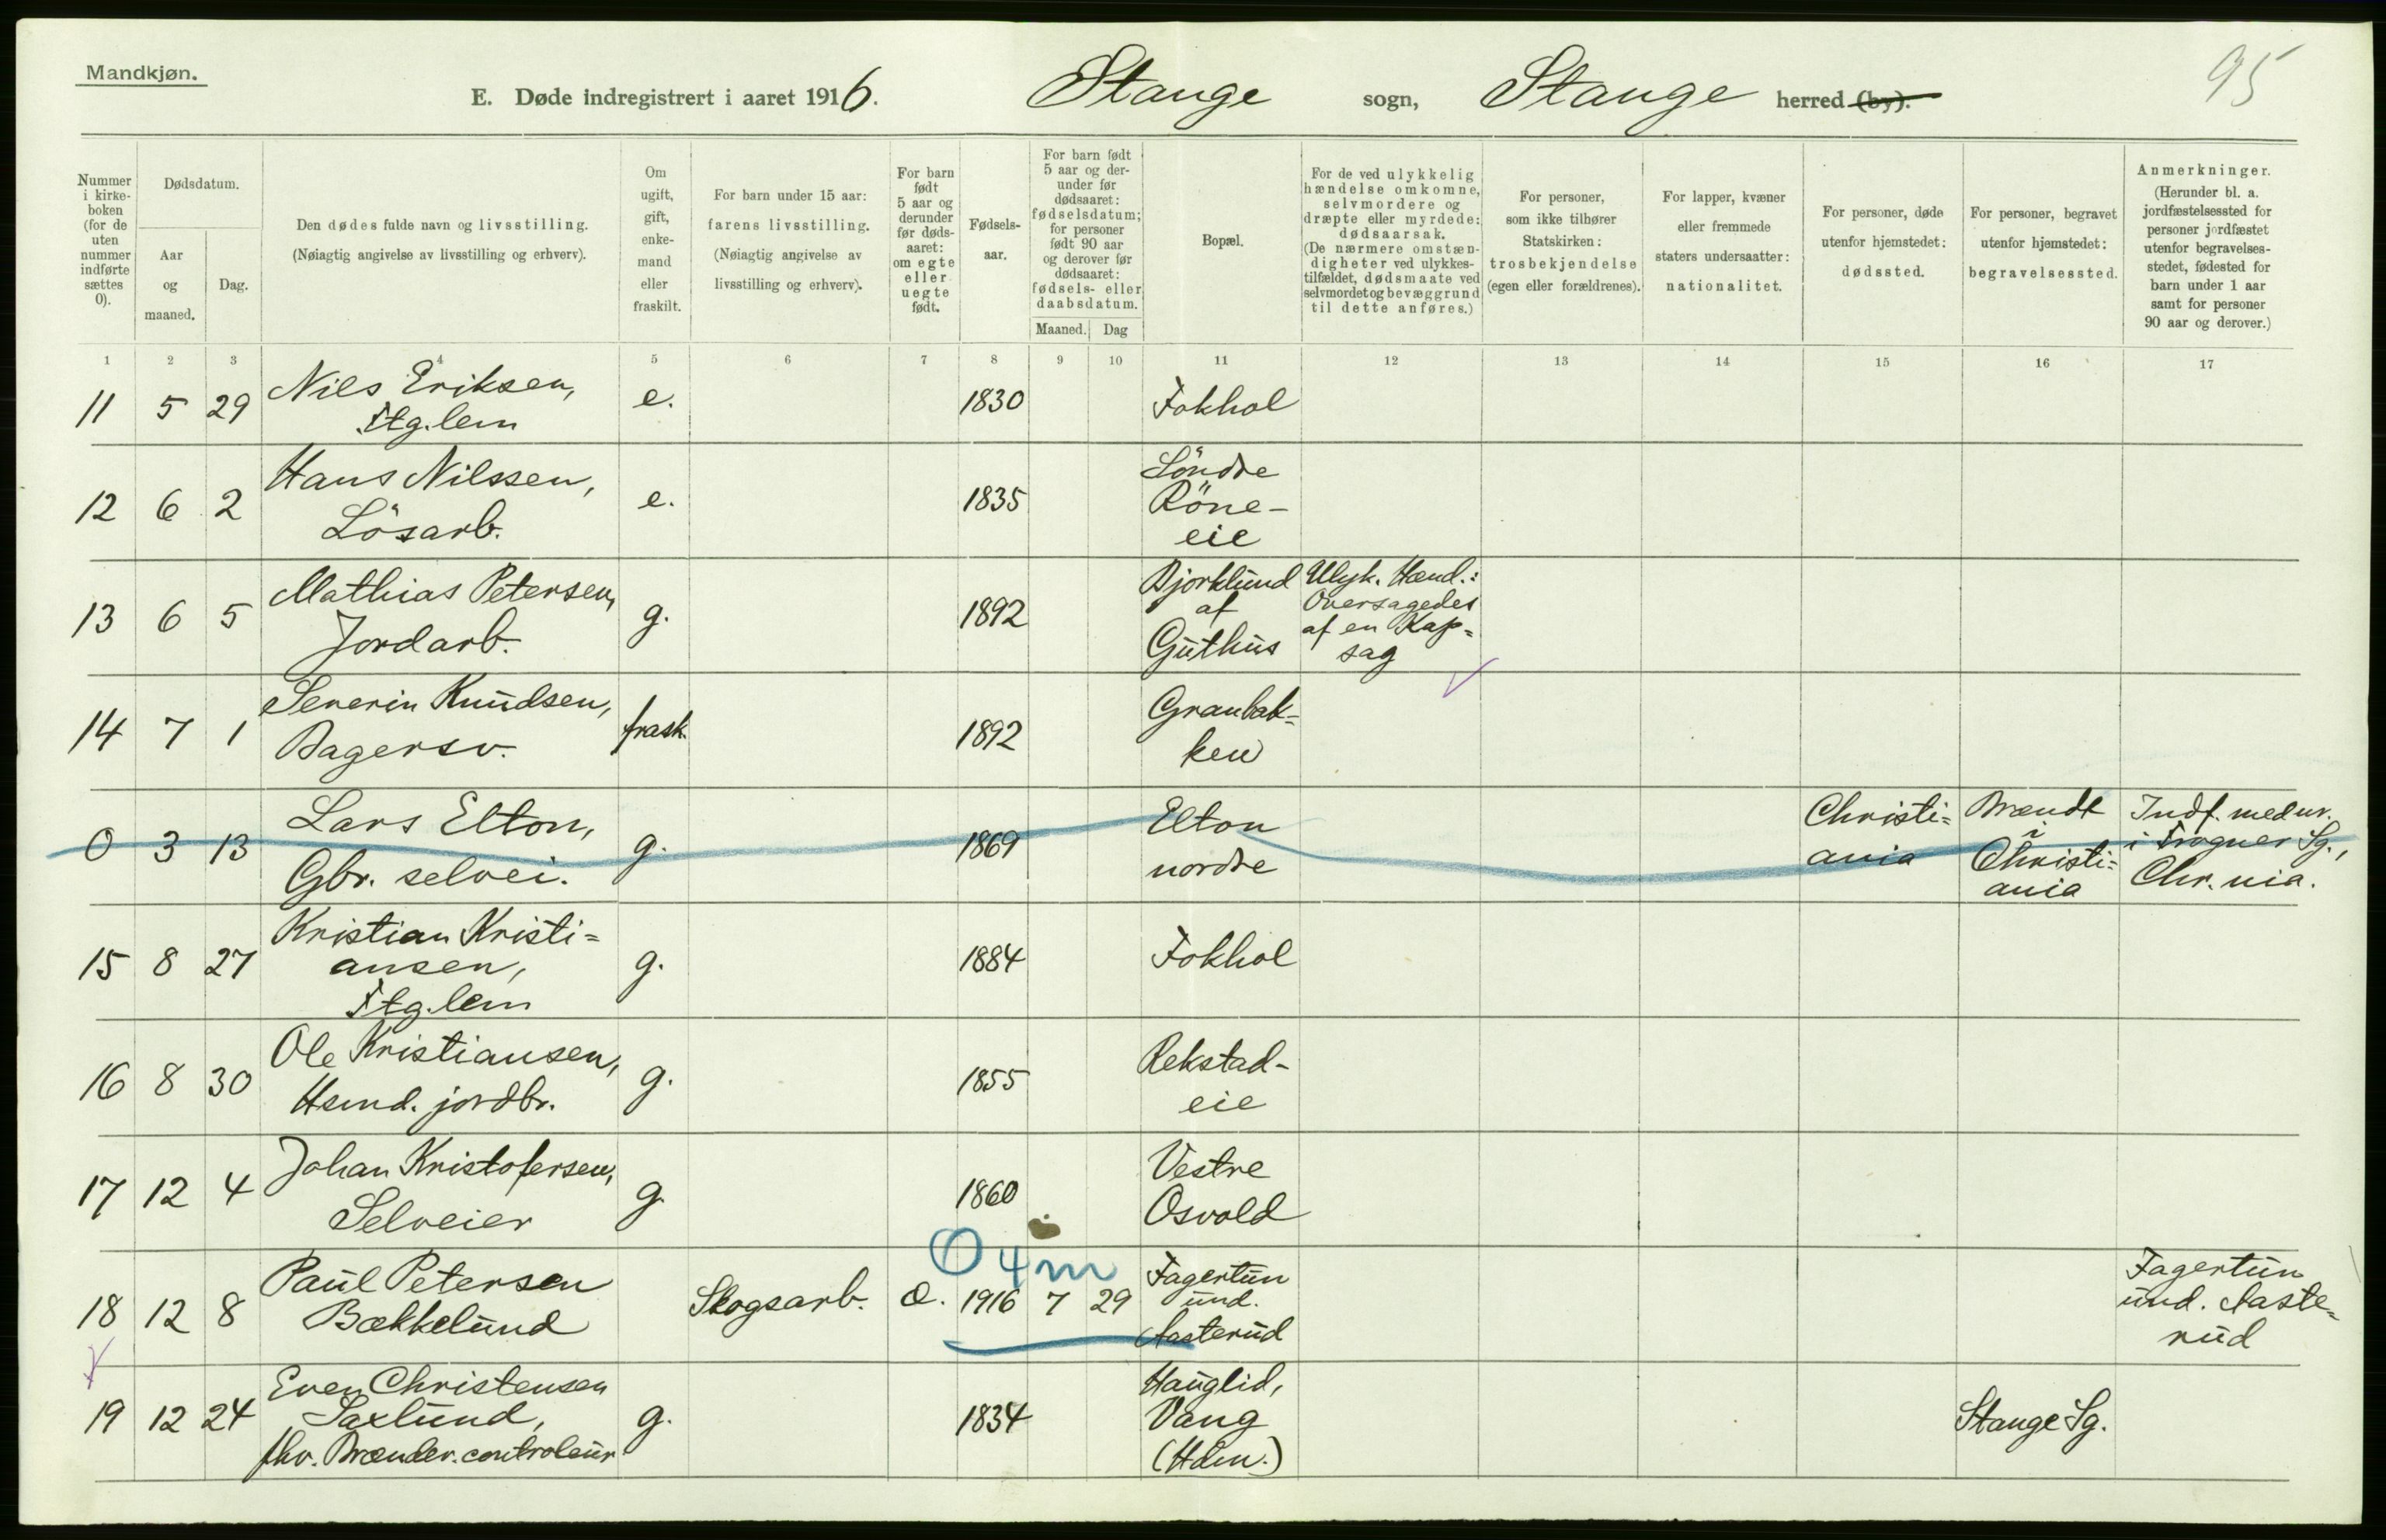 Mandkjøn.
95
E. Døde indregistrert i aaret 1916. Stange sogn, Stange herred (by).
Nummer i kirke-boken (for de uten nummer indførte sættes 0).
Dødsdatum.
Aar og maaned.
Dag.
Den dødes fulde navn og livsstilling. (Nøiagtig angivelse av livsstilling og erhverv).
Om ugift, gift, enke-mand eller fraskilt.
For barn under 15 aar: farens livsstilling. (Nøiagtig angivelse av livsstilling og erhverv).
For barn født 5 aar og derunder før døds-aaret: om egte eller uegte født.
Fødsels-aar.
For barn født 5 aar og der-under før dødsaaret: fødselsdatum; for personer født 90 aar og derover før dødsaaret: fødsels- eller daabsdatum.
Maaned. Dag
Bopæl.
For de ved ulykkelig hændelse omkomne, selvmordere og dræpte eller myrdede: dødsaarsak. (De nærmere omstæn-digheter ved ulykkes-tilfældet, dødsmaate ved selvmordet og bevæggrund til dette anføres.)
For personer, som ikke tilhører Statskirken: trosbekjendelse (egen eller forældrenes).
For lapper, kvæner eller fremmede staters undersaatter: nationalitet.
For personer, døde utenfor hjemstedet: dødssted.
For personer, begravet utenfor hjemstedet: begravelsessted.
Anmerkninger. (Herunder bl. a. jordfæstelsessted for personer jordfæstet utenfor begravelses-stedet, fødested for barn under 1 aar samt for personer 90 aar og derover.)
1 2 3 4 5 6 7 8 9 10 11 12 13 14 15 16 17
11 5 29 Nils Eriksen, e. 1830 Fokhol
Ftg.lem
12 6 2 Hans Nilssen, e. 1835 Söndre
Lösarb. Röne-
eie
13 6 5 Mathias Petersen, g. 1892 Bjorklund Ulyk. Hænd.:
Jordarb. af Oversagedes
Guthus af en Kap=
sag
14 7 1 Severin Knudsen, frask. 1892 Granbak=
Bagersv. ken
0 3 13 Lars Elton, g. 1869 Elton Christi= Brændt Indf. med nr.
Gbr. selvei. nordre ania i Christi= i Frogner Sg.,
ania Chr.nia.
15 8 27 Kristian Kristi= g. 1884 Fokhol
ansen,
Ftg.lem
16 8 30 Ole Kristiansen, g. 1855 Rekstad-
Hsmd. jordbr. eie
17 12 4 Johan Kristofersen, g. 1860 Vestre
Selveier Osvold
0 4 m
18 12 8 Paul Petersen Skogsarb. e. 1916 7 29 Fagertun Fagertun
Bækkelund und. und. Aaste=
Aasterud rud
19 12 24 Even Christensen g. 1834 Hauglid, Stange Sg.
Saxlund, Vang
fhv. Brænder.controleur (Hdm.)